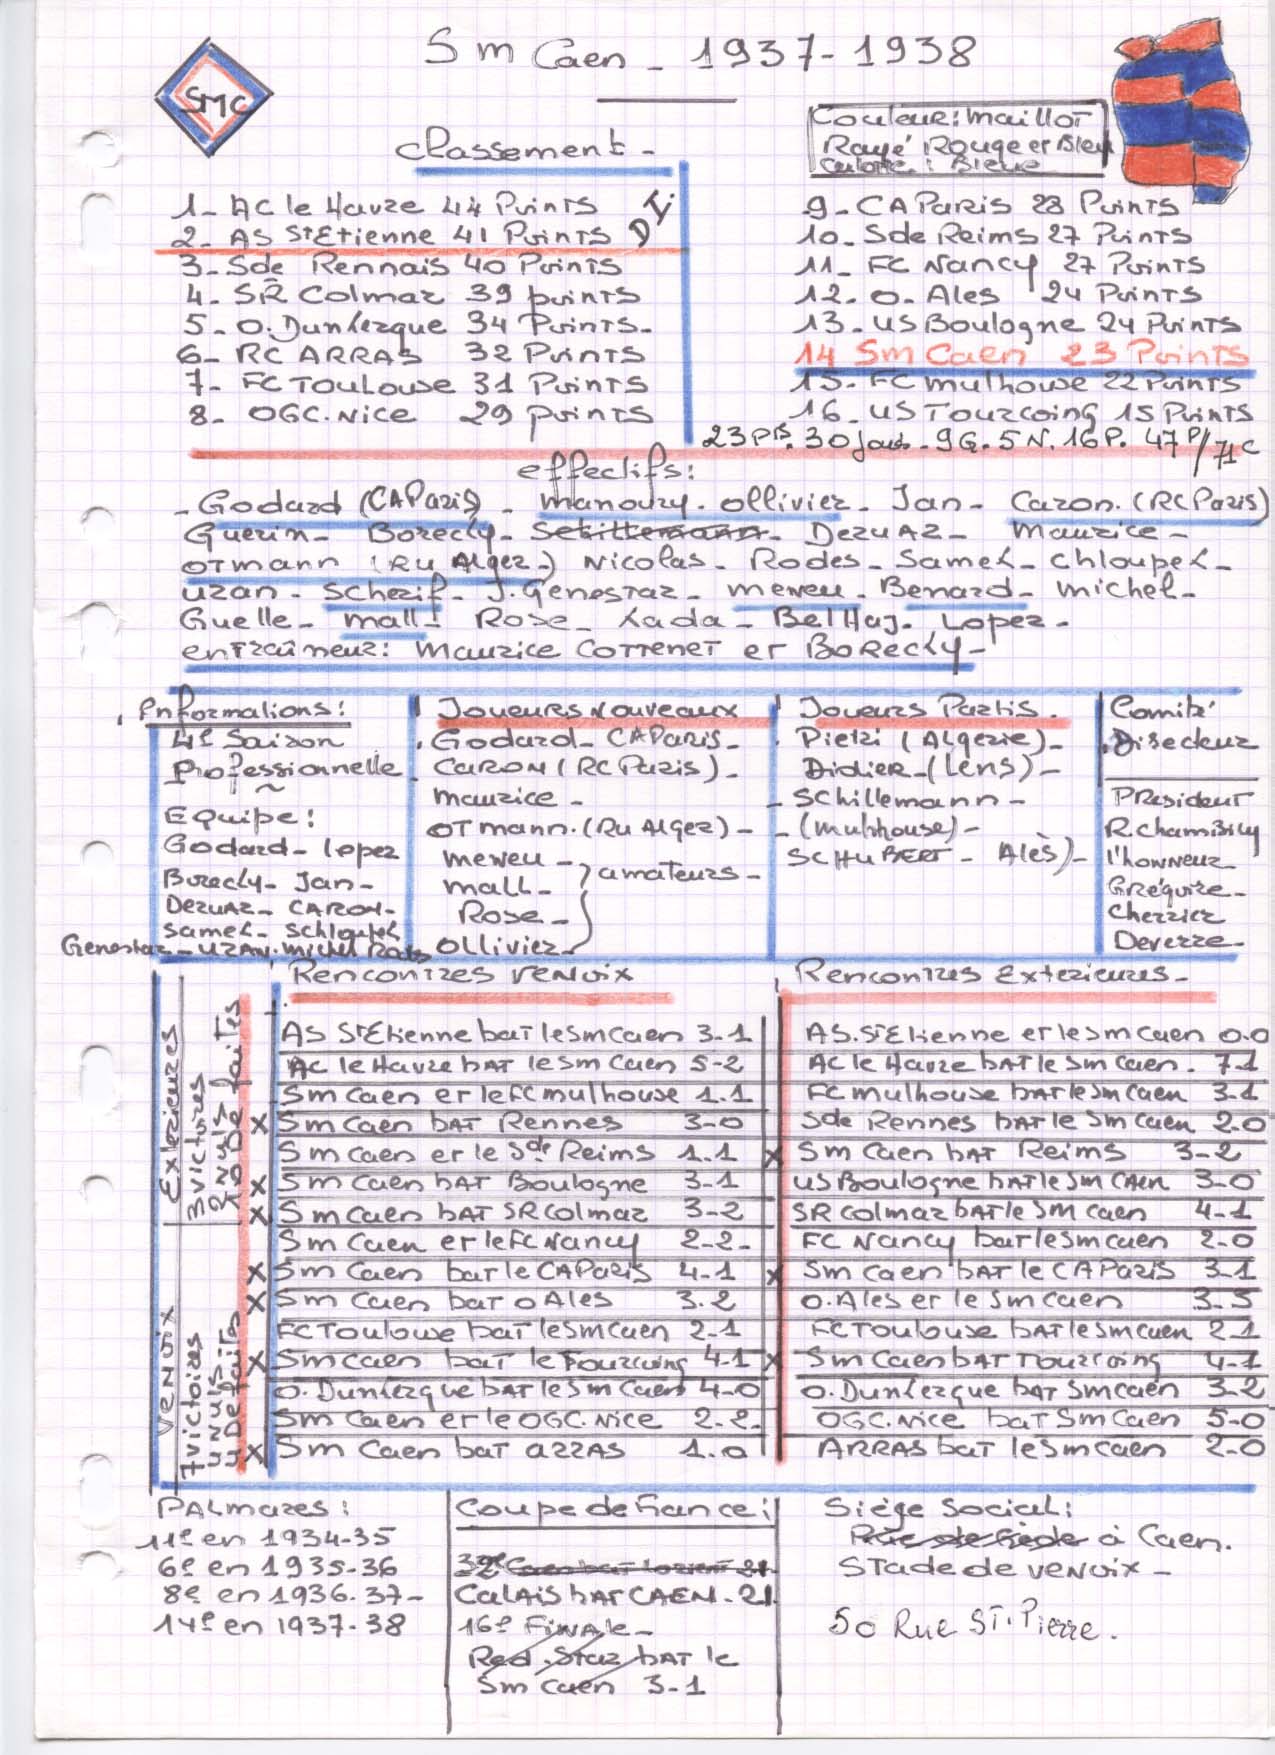 Sm Caen - 1937-1938
SMC
Couleur: Maillot
Rayé Rouge et Bleu
Culotte: Bleue
Classement -
1- AC le Havre 44 Points
2- AS St Etienne 41 Points
3- Sde Rennais 40 Points
4- SR Colmar 39 points
5- O. Dunkerque 34 Points-
6- RC ARRAS 32 Points
7- FC Toulouse 31 Points
8- OGC. Nice 29 points
9- CA Paris 28 Points
10- Sde Reims 27 Points
11- FC Nancy 27 Points
12- O. Ales 24 Points
13- US Boulogne 24 Points
14 Sm Caen 23 Points
15- FC mulhouse 22 Points
16- US Tourcoing 15 Points
23 Pts. 30 Jours - 9G. 5N. 16P. 47P/71C
effectifs:
- Godard (CAParis) - manoury - ollivier - Jan - Caron. (RC Paris)
Guerin - Borecky - DERUAZ - Maurice -
OTmann (Ru Alger) Nicolas - Rodes - Samek - Chloupek -
Uzan - Scherif - J. Genestar - meweu - Benard - michel -
Guelle - mall - Rose - Kada - BelHaj - Lopez -
entraîneur: Maurice COTTENET et BORECKY -
Informations:
4e Saison
Professionnelle
~
Equipe:
Godard - Lopez
Borecky - Jan -
DERUAZ - CARON -
Samek - Schloupek
Genestar - UZAN. michel Rodes
Joueurs Nouveaux
Godard - CAParis -
CARON (RC Paris) -
maurice -
OTmann. (Ru Alger) -
meweu -
mall -
Rose -
Ollivier -
amateurs -
Joueurs Partis.
Pietri (Algerie) -
Didier - (Lens) -
- Schillemann -
- (mulhouse) -
SCHUBERT - Alès) -
Comité
Directeur
President
R. Chambily
l'honneur
Grégoire -
Cherrier
Deverre -
Exterieures
3 victoires
2 nuls
10 Defaites
VENOIX
7 victoires
4 nuls
4 Defaites
Rencontres venoix
AS St Etienne bat le Sm Caen 3-1
AC le Havre bat le Sm Caen 5-2
Sm Caen et le FC mulhouse 1.1
x Sm Caen bat Rennes 3-0
Sm Caen et le Sde Reims 1.1
x Sm Caen bat Boulogne 3-1
x Sm Caen bat SR colmar 3-2
Sm Caen et le FC Nancy 2-2-
x Sm Caen bat le CA Paris 4-1
x Sm Caen bat O Ales 3.2
FC Toulouse bat le Sm Caen 2-1
x Sm Caen bat le Tourcoing 4-1
O. Dunkerque bat le Sm Caen 4-0
Sm Caen et le OGC. Nice 2-2-
x Sm Caen bat arras 1.0
Rencontres Exterieures -
AS. St Etienne et le Sm Caen 0.0
AC le Havre bat le Sm Caen. 7-1
FC mulhouse bat le Sm Caen 3-1
Sde Rennes bat le Sm Caen 2.0
x Sm Caen bat Reims 3-2
US Boulogne bat le Sm CAen 3-0
SR colmar bat le Sm Caen 4-1
FC Nancy bat le Sm Caen 2-0
x Sm Caen bat le CA Paris 3-1
O. Ales et le Sm Caen 3-3
FC Toulouse bat le Sm Caen 2-1
x Sm Caen bat Tourcoing 4-1
O. Dunkerque bat Sm Caen 3-2
OGC. Nice bat Sm Caen 5-0
ARRAS bat le Sm Caen 2-0
PALmares:
11e en 1934-35
6e en 1935-36
8e en 1936.37-
14e en 1937-38
Coupe de France:
32e Caen bat Lorient 2-1.
CALAIS bat CAEN - 21.
16e FiNALe -
Red Star bat le
Sm Caen 3-1
Siège Social:
à Caen.
Stade de venoix -
50 Rue ST. Pierre.